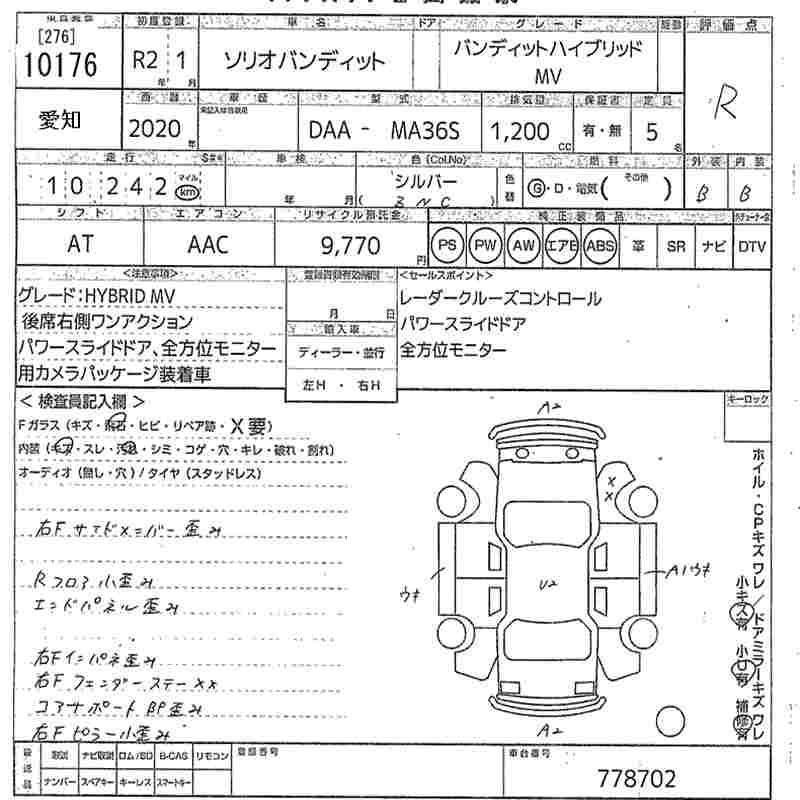 [276] 初度登録 車名 ドア グレード 評価点
10176 R2年 1月 ソリオバンディット バンディットハイブリッド
MV
R
愛知 西暦 車歴 型式 排気量 保証書 定員
2020年 DAA - MA36S 1,200cc 有・無 5名
走行 車検 色(Col.No) 燃料 外装 内装
10242 マイル km 年 月 シルバー 色替 G・D・電気(その他) B B
シフト エアコン リサイクル預託金 純正装備品
AT AAC 9,770円 PS PW AW エアB ABS 革 SR ナビ DTV
<注意事項> <セールスポイント>
グレード:HYBRID MV レーダークルーズコントロール
後席右側ワンアクション 月 日 パワースライドドア
パワースライドドア、全方位モニター 輸入車 全方位モニター
用カメラパッケージ装着車 ディーラー・並行
左H ・ 右H
<検査員記入欄> キーロック
Fガラス(キズ・飛石・ヒビ・リペア跡・X要)
内装(キズ・スレ・汚れ・シミ・コゲ・穴・キレ・破れ・割れ)
オーディオ(無し・穴)/タイヤ(スタッドレス)
右Fサイドメンバー歪み
Rフロア小歪み
エンドパネル歪み
右Fインパネ歪み
右FフェンダーステーXX
コアサポートBP歪み
右Fピラー小歪み
A2
X
X
ウキ
U2
A1ウキ
A2
ホイル・CPキズワレ/ドアミラーキズワレ
小キズ有 小U有 補修有
取説 ナビ取説 ロム/SD B-CAS リモコン 登録番号 車台番号
ナンバー スペアキー キーレス スマートキー
778702